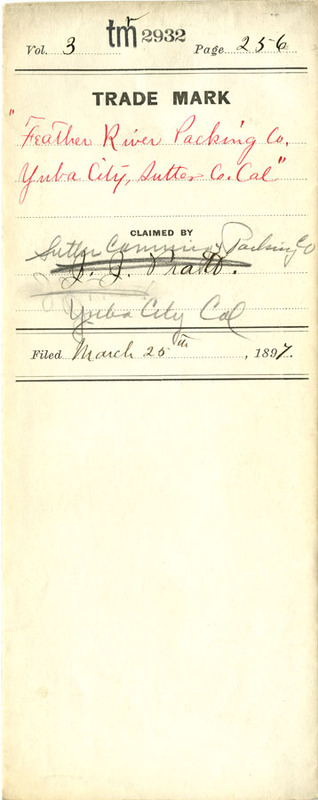 Vol. 3 tm 2932 Page 256
TRADE MARK
"Feather River Packing Co.
Yuba City, Sutter Co. Cal"
CLAIMED BY
Sutter Canning & Packing Co
J. J. Pratt.
Yuba City Cal
Filed March 25th, 1897.